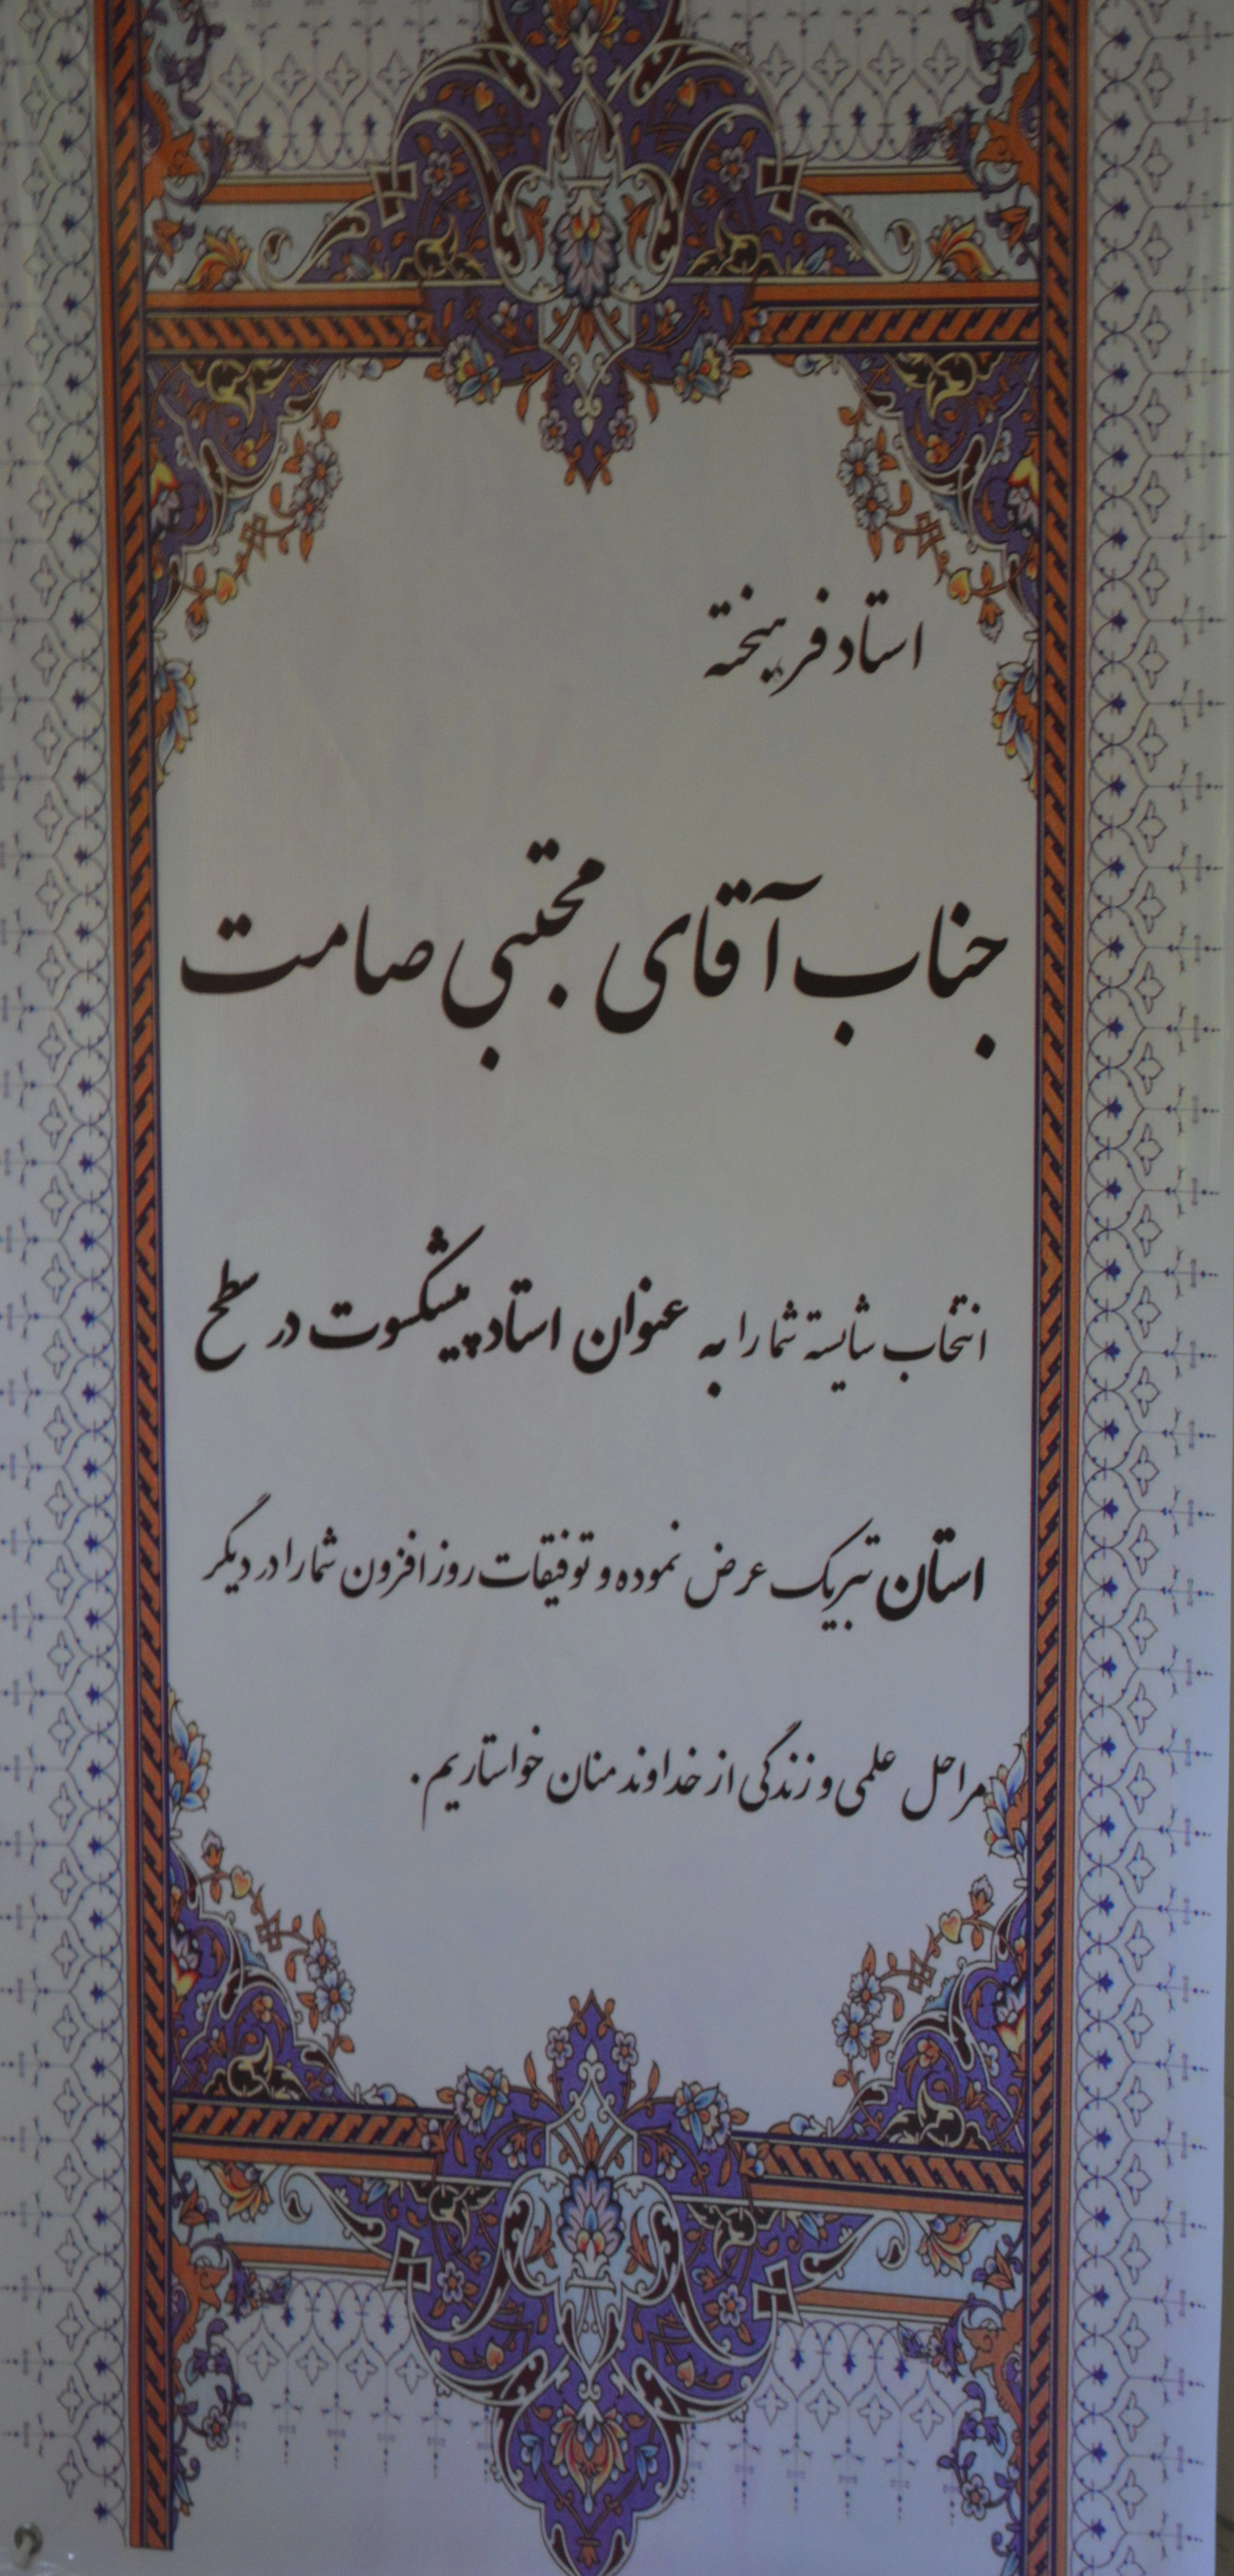 استاد فرهیخته
جناب آقای مجتبی صامت
انتخاب شایسته شما را به عنوان استاد پیشکسوت در سطح
استان تبریک عرض نموده و توفیقات روز افزون شما را در دیگر
مراحل علمی و زندگی از خداوند منان خواستاریم.